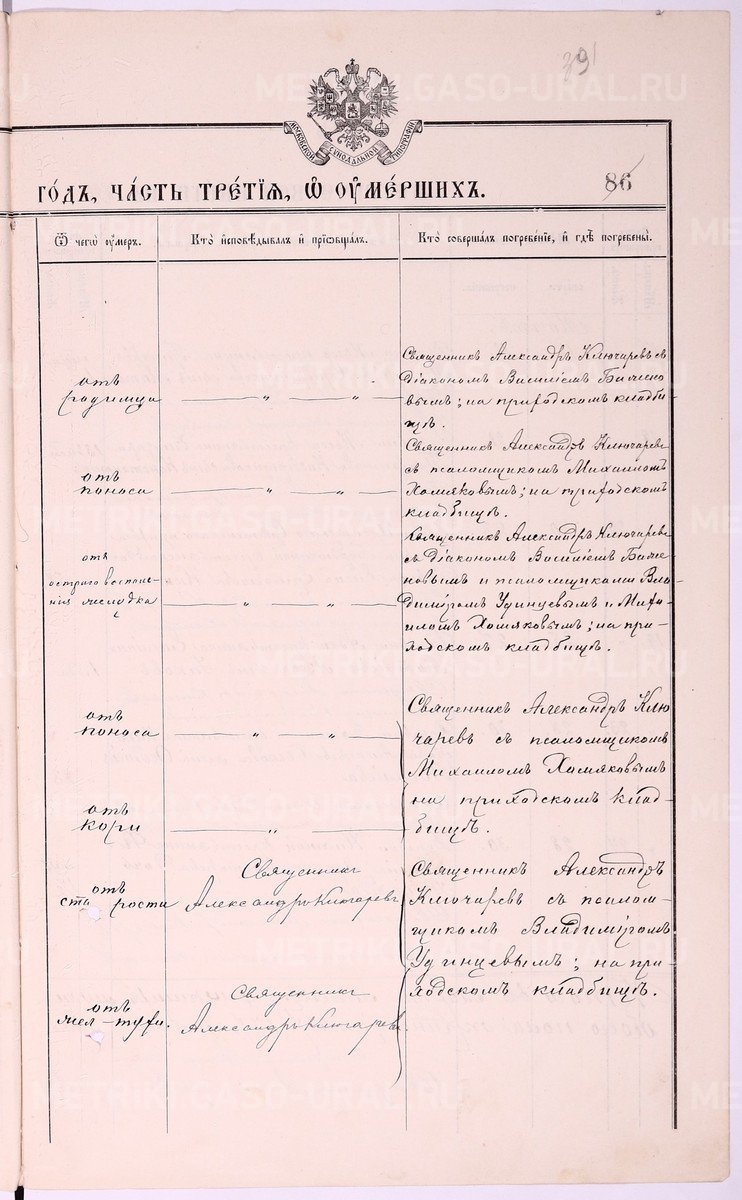 391
МОСКОВСКОЙ СѴНОДАЛЬНОЙ ТИПОГРАФІИ
ГО́ДЪ, ЧА́СТЬ ТРЕ́ТІѦ, Ѿ ОУ҆МЕ́РШИХЪ.
86
Ѿ чегѡ̀ оу҆́меръ.
Кто̀ и҆сповѣ́дывалъ и҆ прїѡбща́лъ.
Кто̀ соверша́лъ погребе́нїе, и҆ гдѣ̀ погребены̀.
отъ
родимца
— „ — „ —
Священникъ Александръ Ключаревъ съ
Діакономъ Василіемъ
вымъ; на приходскомъ кладби-
щѣ.
отъ
поноса
— „ — „ —
Священникъ Александръ Ключаревъ
съ псаломщикомъ Михаиломъ
Хомяковымъ; на приходскомъ
кладбищѣ.
отъ
остраго воспале-
нія желудка
— „ — „ —
Священникъ Александръ Ключаревъ
съ Діакономъ Василіемъ
новымъ и псаломщиками Вла-
диміромъ Удинцевымъ и Миха-
иломъ Хомяковымъ; на при-
ходскомъ кладбищѣ.
отъ
поноса
— „ — „ —
отъ
кори
— „ —
Священникъ Александръ Клю
чаревъ съ псаломщикомъ
Михаиломъ Хомяковымъ
на приходскомъ клад-
бищѣ.
отъ
ста рости
Священникъ
Александръ Ключаревъ
отъ
жел-тухи.
Священникъ
Александръ Ключаревъ
Священникъ Александръ
Ключаревъ съ псалом-
щикомъ Владиміромъ
Удинцевымъ; на при-
ходскомъ кладбищѣ.
METRIKI.GASO-URAL.RU